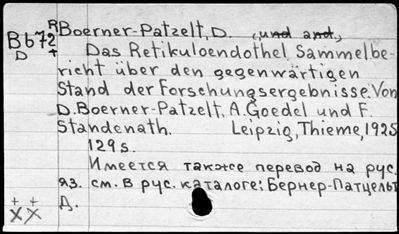 R Boerner-Patzelt, D. (und and,)
Bb72 Das Retikuloendothel. Sammelbe-
D + richt über den gegenwärtigen
Stand der Forschungsergebnisse. Von
D. Boerner-Patzelt, A. Goedel und F.
Standenath. Leipzig, Thieme, 1925
129 s.
Имеется также перевод на рус.
яз. см. в рус. каталоге: Бернер-Патцельт
Д.
+ +
XX